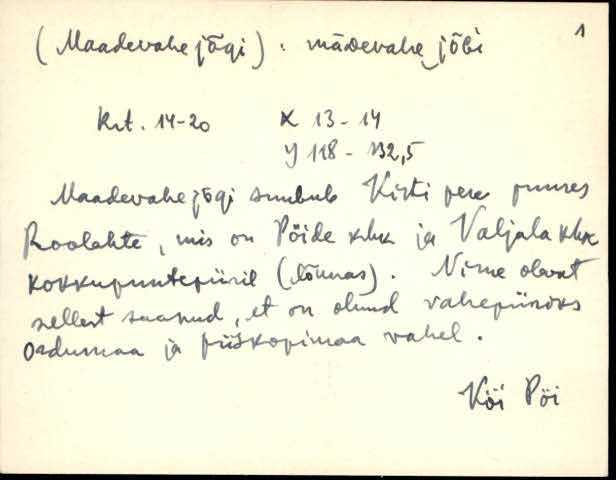 1
(Maadevahe jõgi). mādevahe jõɢi
krt. 14-20 X 13-14
Y 118 - 132,5
Maadevahejõgi suubub Kirti pere juures
Roolahte, mis on Pöide khk ja Valjala khk
kokkupuutepiiril (lõunas). Nime olevat
sellest saanud, et on olnud vahepiiriks
Ordumaa ja piiskopimaa vahel.
Köi Pöi